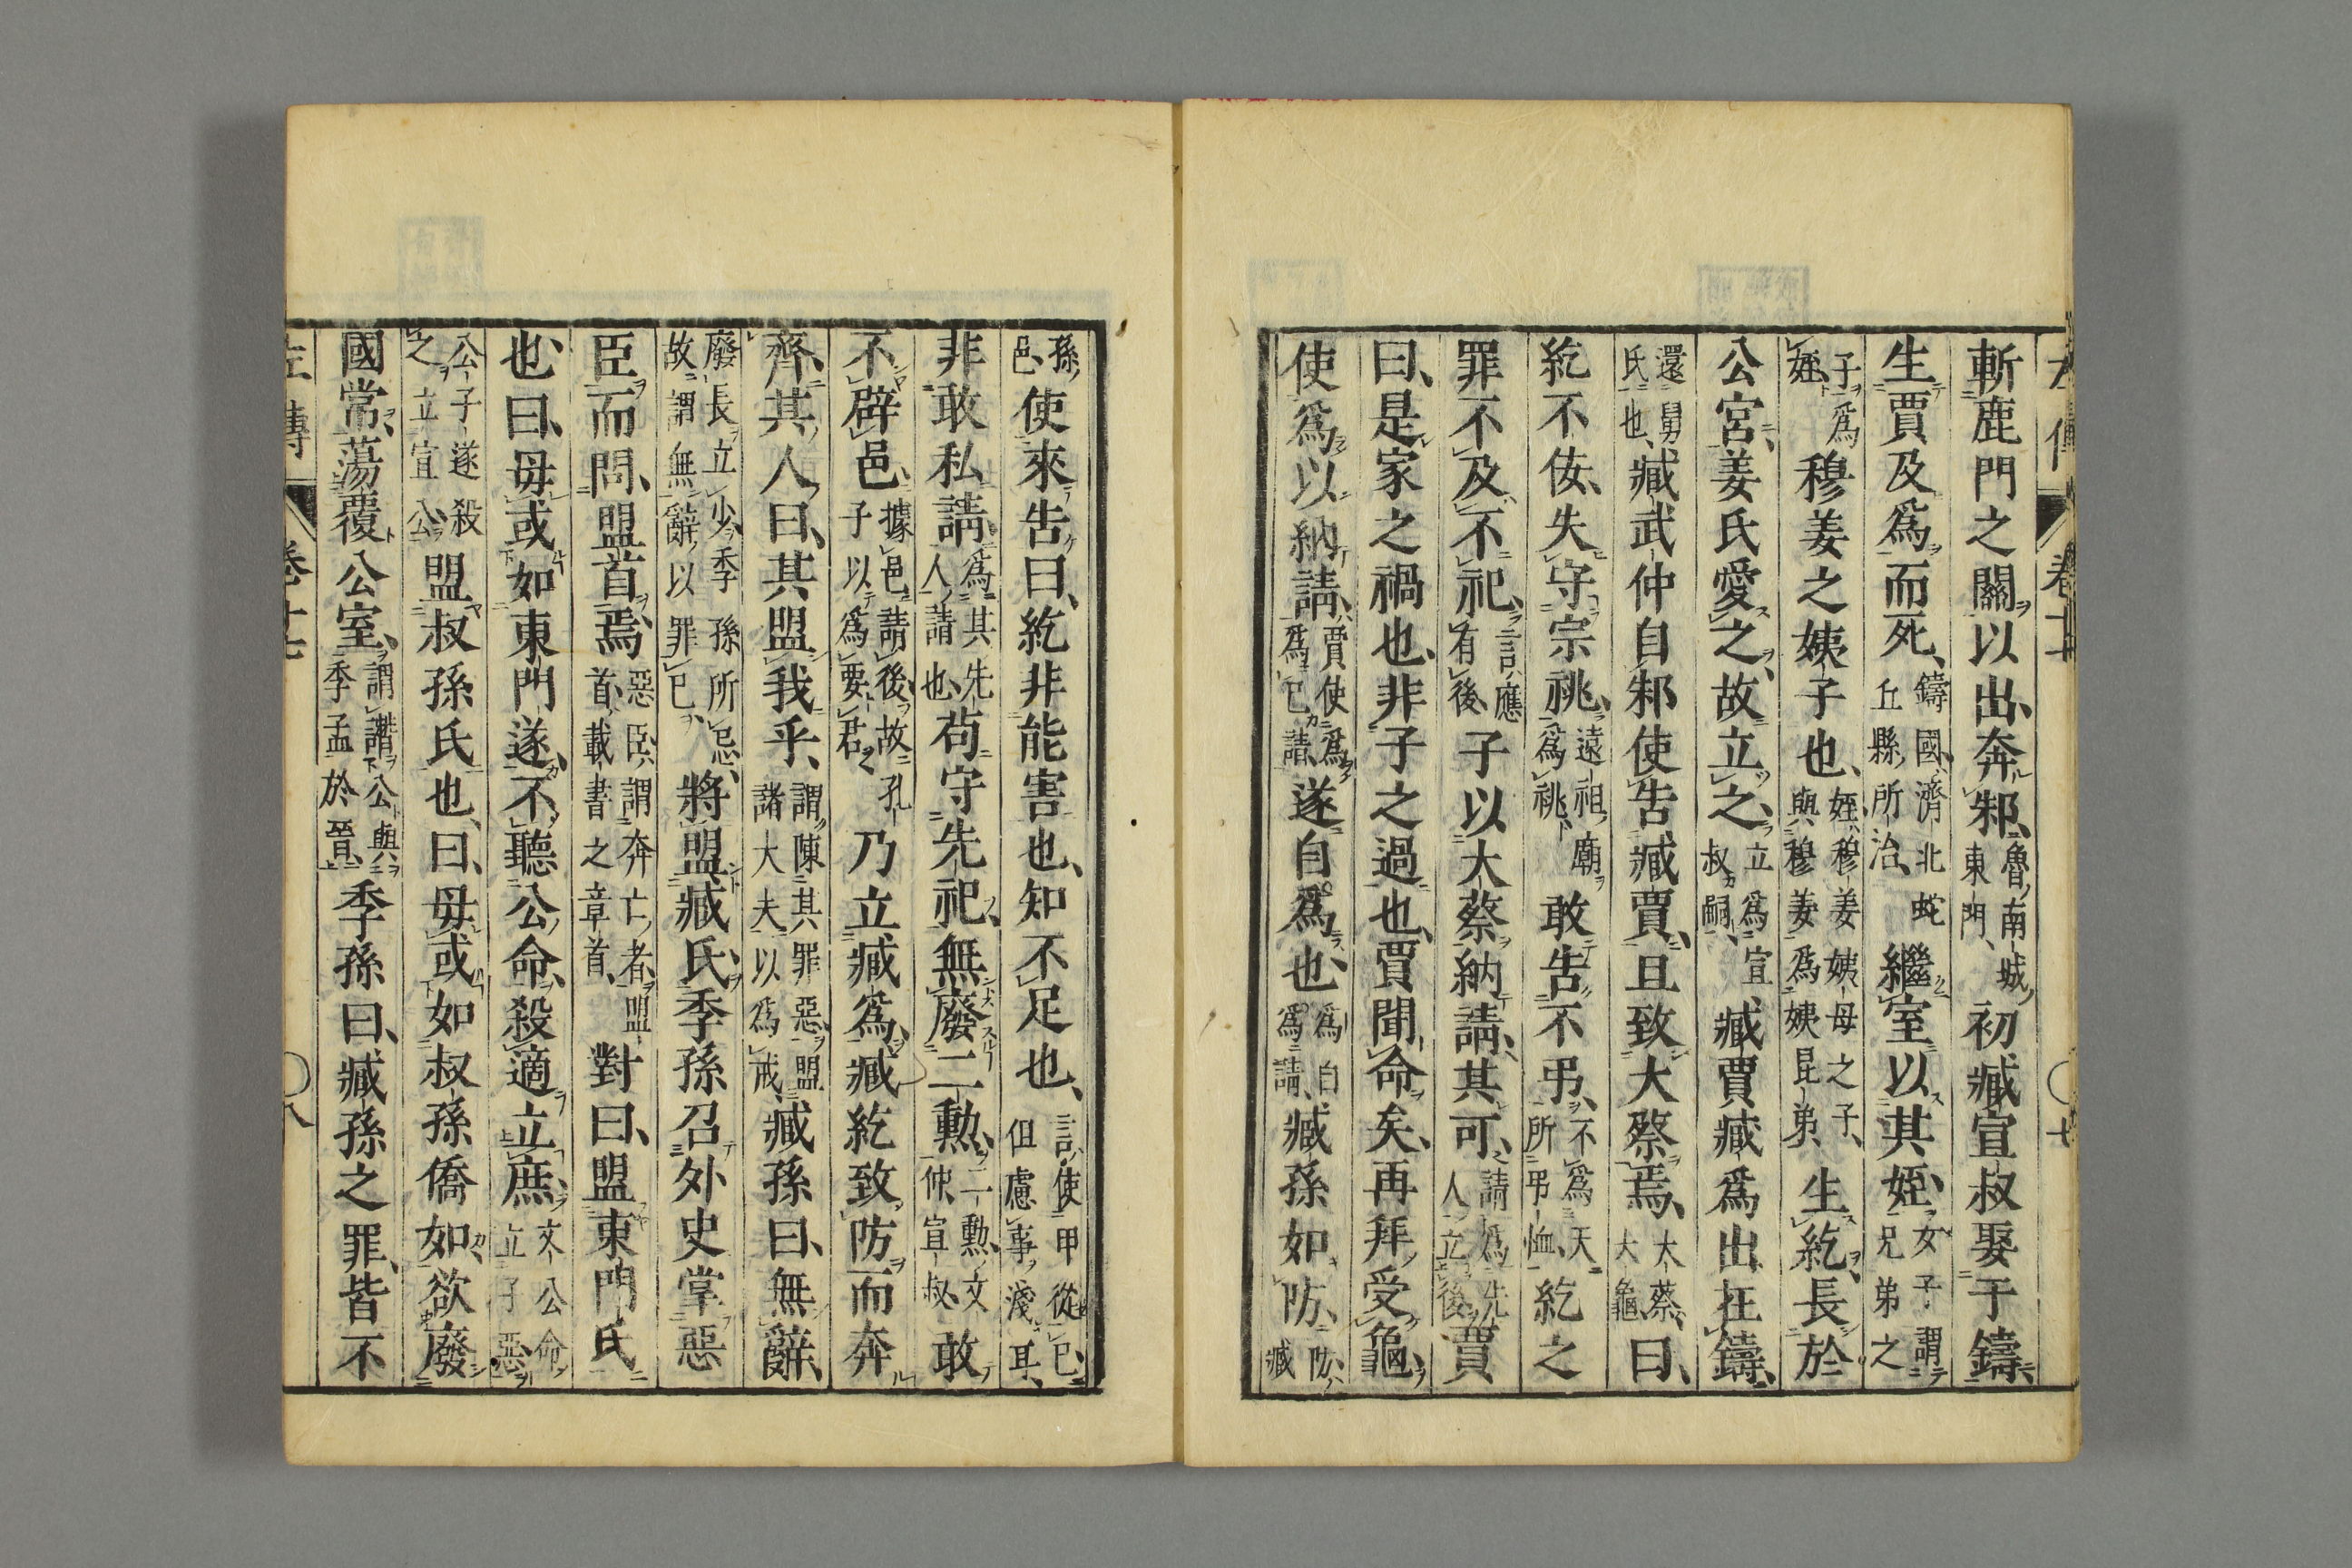 斬鹿門之關以出、奔邾、魯南城東門、初臧宣叔娶于鑄、
生賈及爲而死、鑄國、濟北蛇丘縣所治、繼室以其姪、女子謂兄弟之
子爲姪、穆姜之姨子也、姪、穆姜姨母之子、與穆姜爲姨昆弟、生紇、長於
公宮、姜氏愛之、故立之、立爲宣叔嗣、臧賈臧爲出在鑄、
還舅氏也、臧武仲自邾使告臧賈、且致大蔡焉、大蔡、大龜、曰、
紇不佞、失守宗祧、遠祖廟爲祧、敢告不弔、不爲天所弔恤、紇之
罪不及不祀、言應有後、子以大蔡納請、其可、請爲先人立後、賈
曰、是家之禍也、非子之過也、賈聞命矣、再拜受龜、
使爲以納請、賈使爲爲己請、遂自爲也、爲自爲請、臧孫如防、防、臧
孫邑、使來告曰、紇非能害也、知不足也、言使甲從己、但慮事淺耳、
非敢私請、爲其先人請也、苟守先祀、無廢二勳、二勳、文仲、宣叔、敢
不辟邑、據邑請後、故孔子以爲要君、乃立臧爲、臧紇致防而奔
齊、其人曰、其盟我乎、謂陳其罪惡、盟諸大夫以爲戒、臧孫曰、無辭、
廢長立少、季孫所忌、故謂無辭以罪己、將盟臧氏、季孫召外史掌惡
臣而問盟首焉、惡臣、謂奔亡者、盟首、載書之章首、對曰、盟東門氏
也、曰、毋或如東門遂、不聽公命、殺適立庶、文公命立子惡、
公子遂殺之立宣公、盟叔孫氏也、曰、毋或如叔孫僑如、欲廢
國常、蕩覆公室、謂譖公與季孟於晉、季孫曰、臧孫之罪、皆不
左傳 卷十七 ○八